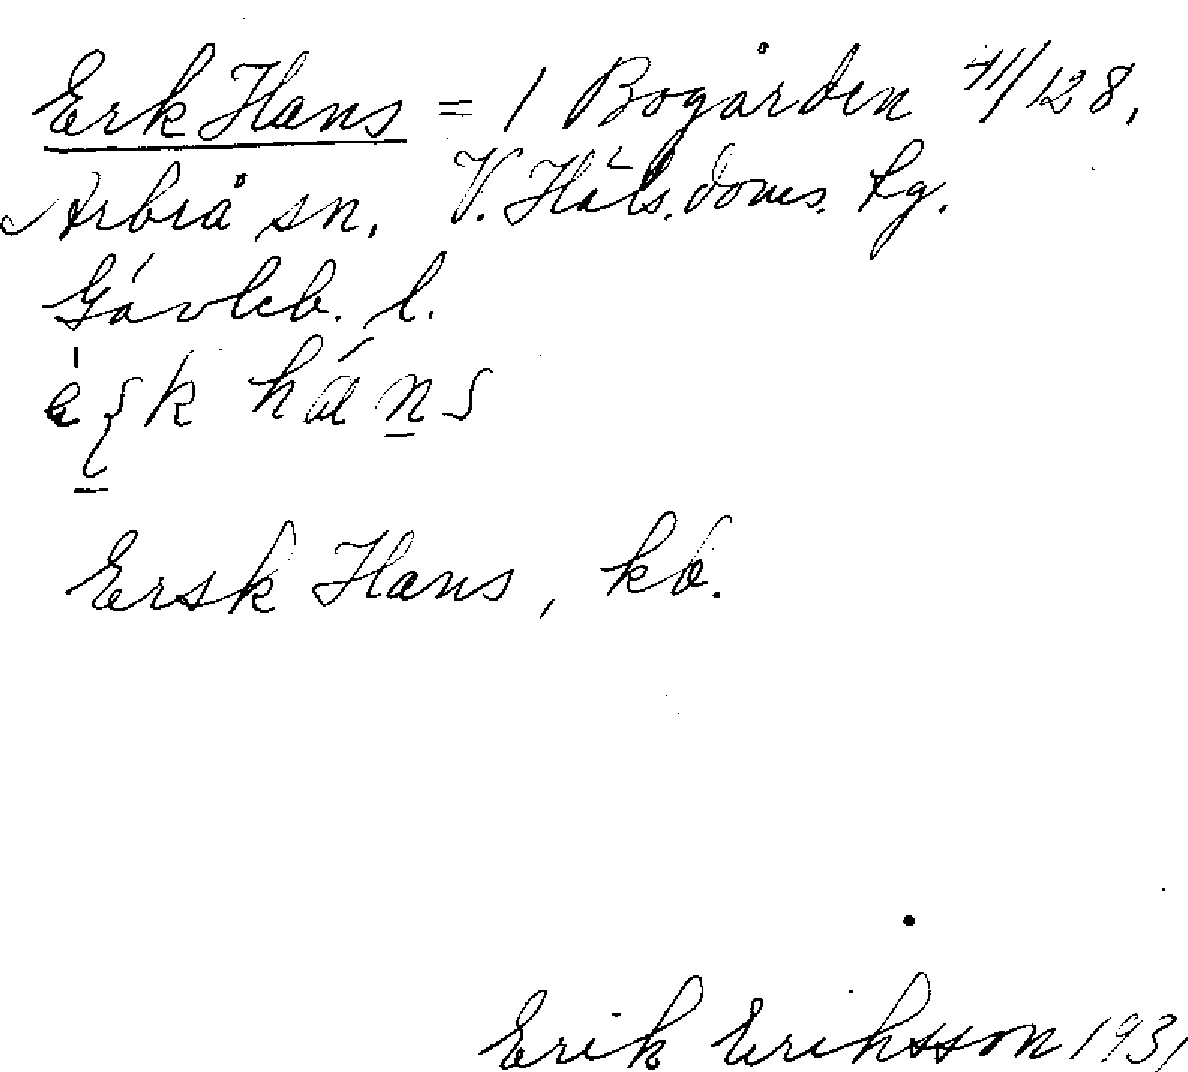 Erk Hans = 1 Bogården 41/128,
Arbrå sn. V. Häls. doms. lg.
Gävleb. l.
Ersk Hans, kb.
Erik Eriksson 1931